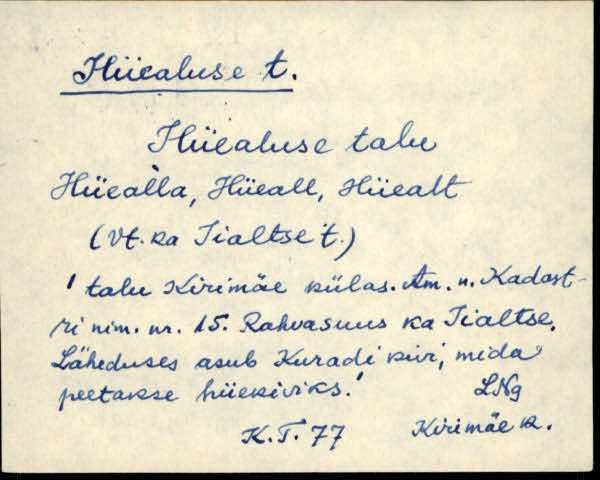 Hüealuse t.
Hüealuse talu
Hüealla, Hüeall, Hüealt
(Vt. ka Tialtse t.)
' talu Kirimäe külas. Am. n. Kadast-
ri nim. nr. 15. Rahvasuus ka Tialtse.
Läheduses asub Kuradi kivi, mida
peetakse hüekiviks.' LNg
K.T. 77 Kirimäe k.